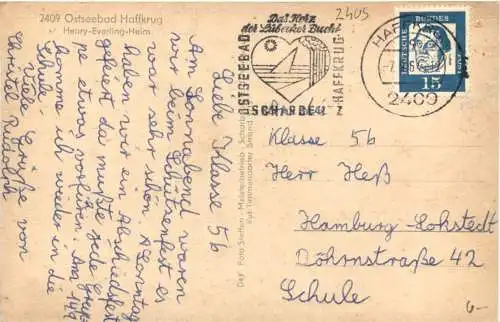 2409 Ostseebad Haffkrug
Henry-Everling-Heim
Liebe Klasse 5b
Am Sonnabend waren
wir beim Schützenfest es
war sehr schön. Sonntag
haben wir ein Abschiedsfest
gefeiert da mußte jede Grup-
pe etwas vorführen. Am 14.9
komme ich wieder in die
Schule.
Viele Grüße von
Christel Rudolph
Das Herz
der Lübecker Bucht
OSTSEEBAD
SCHARBEUTZ
HAFFKRUG
2405
HAFFKRUG
2409
DEUTSCHE BUNDESPOST
15
Klasse 5b
Herr Heß
Hamburg-Lohstedt
Döhrnstraße 42
Schule
6-